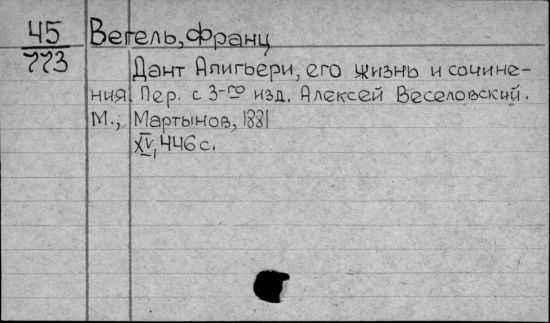 45 Вегель, Франц
773
Дант Алигьери, его жизнь и сочине-
ния. Пер. с 3-го изд. Алексей Веселовский.
М., Мартынов, 1881
XV, 446 с.